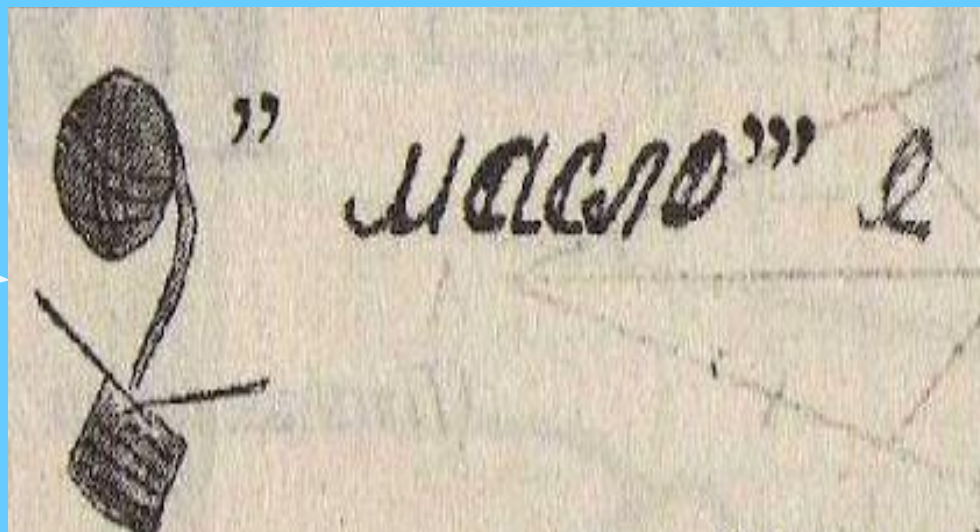 ” масло””’ е